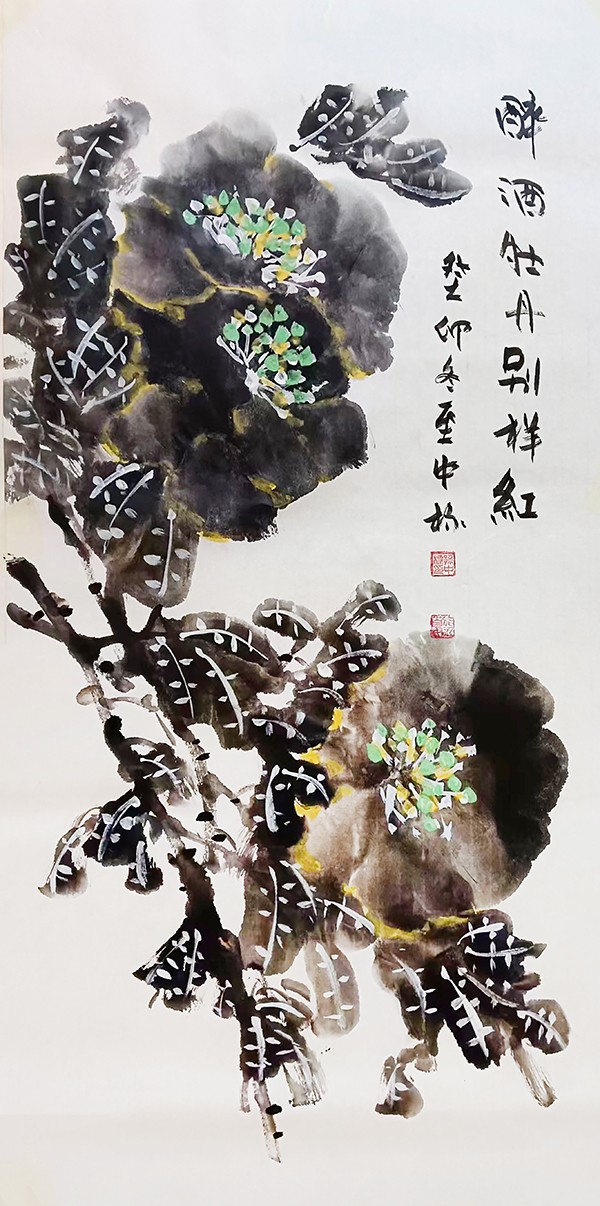 醉酒牡丹别样紅
癸卯冬至中